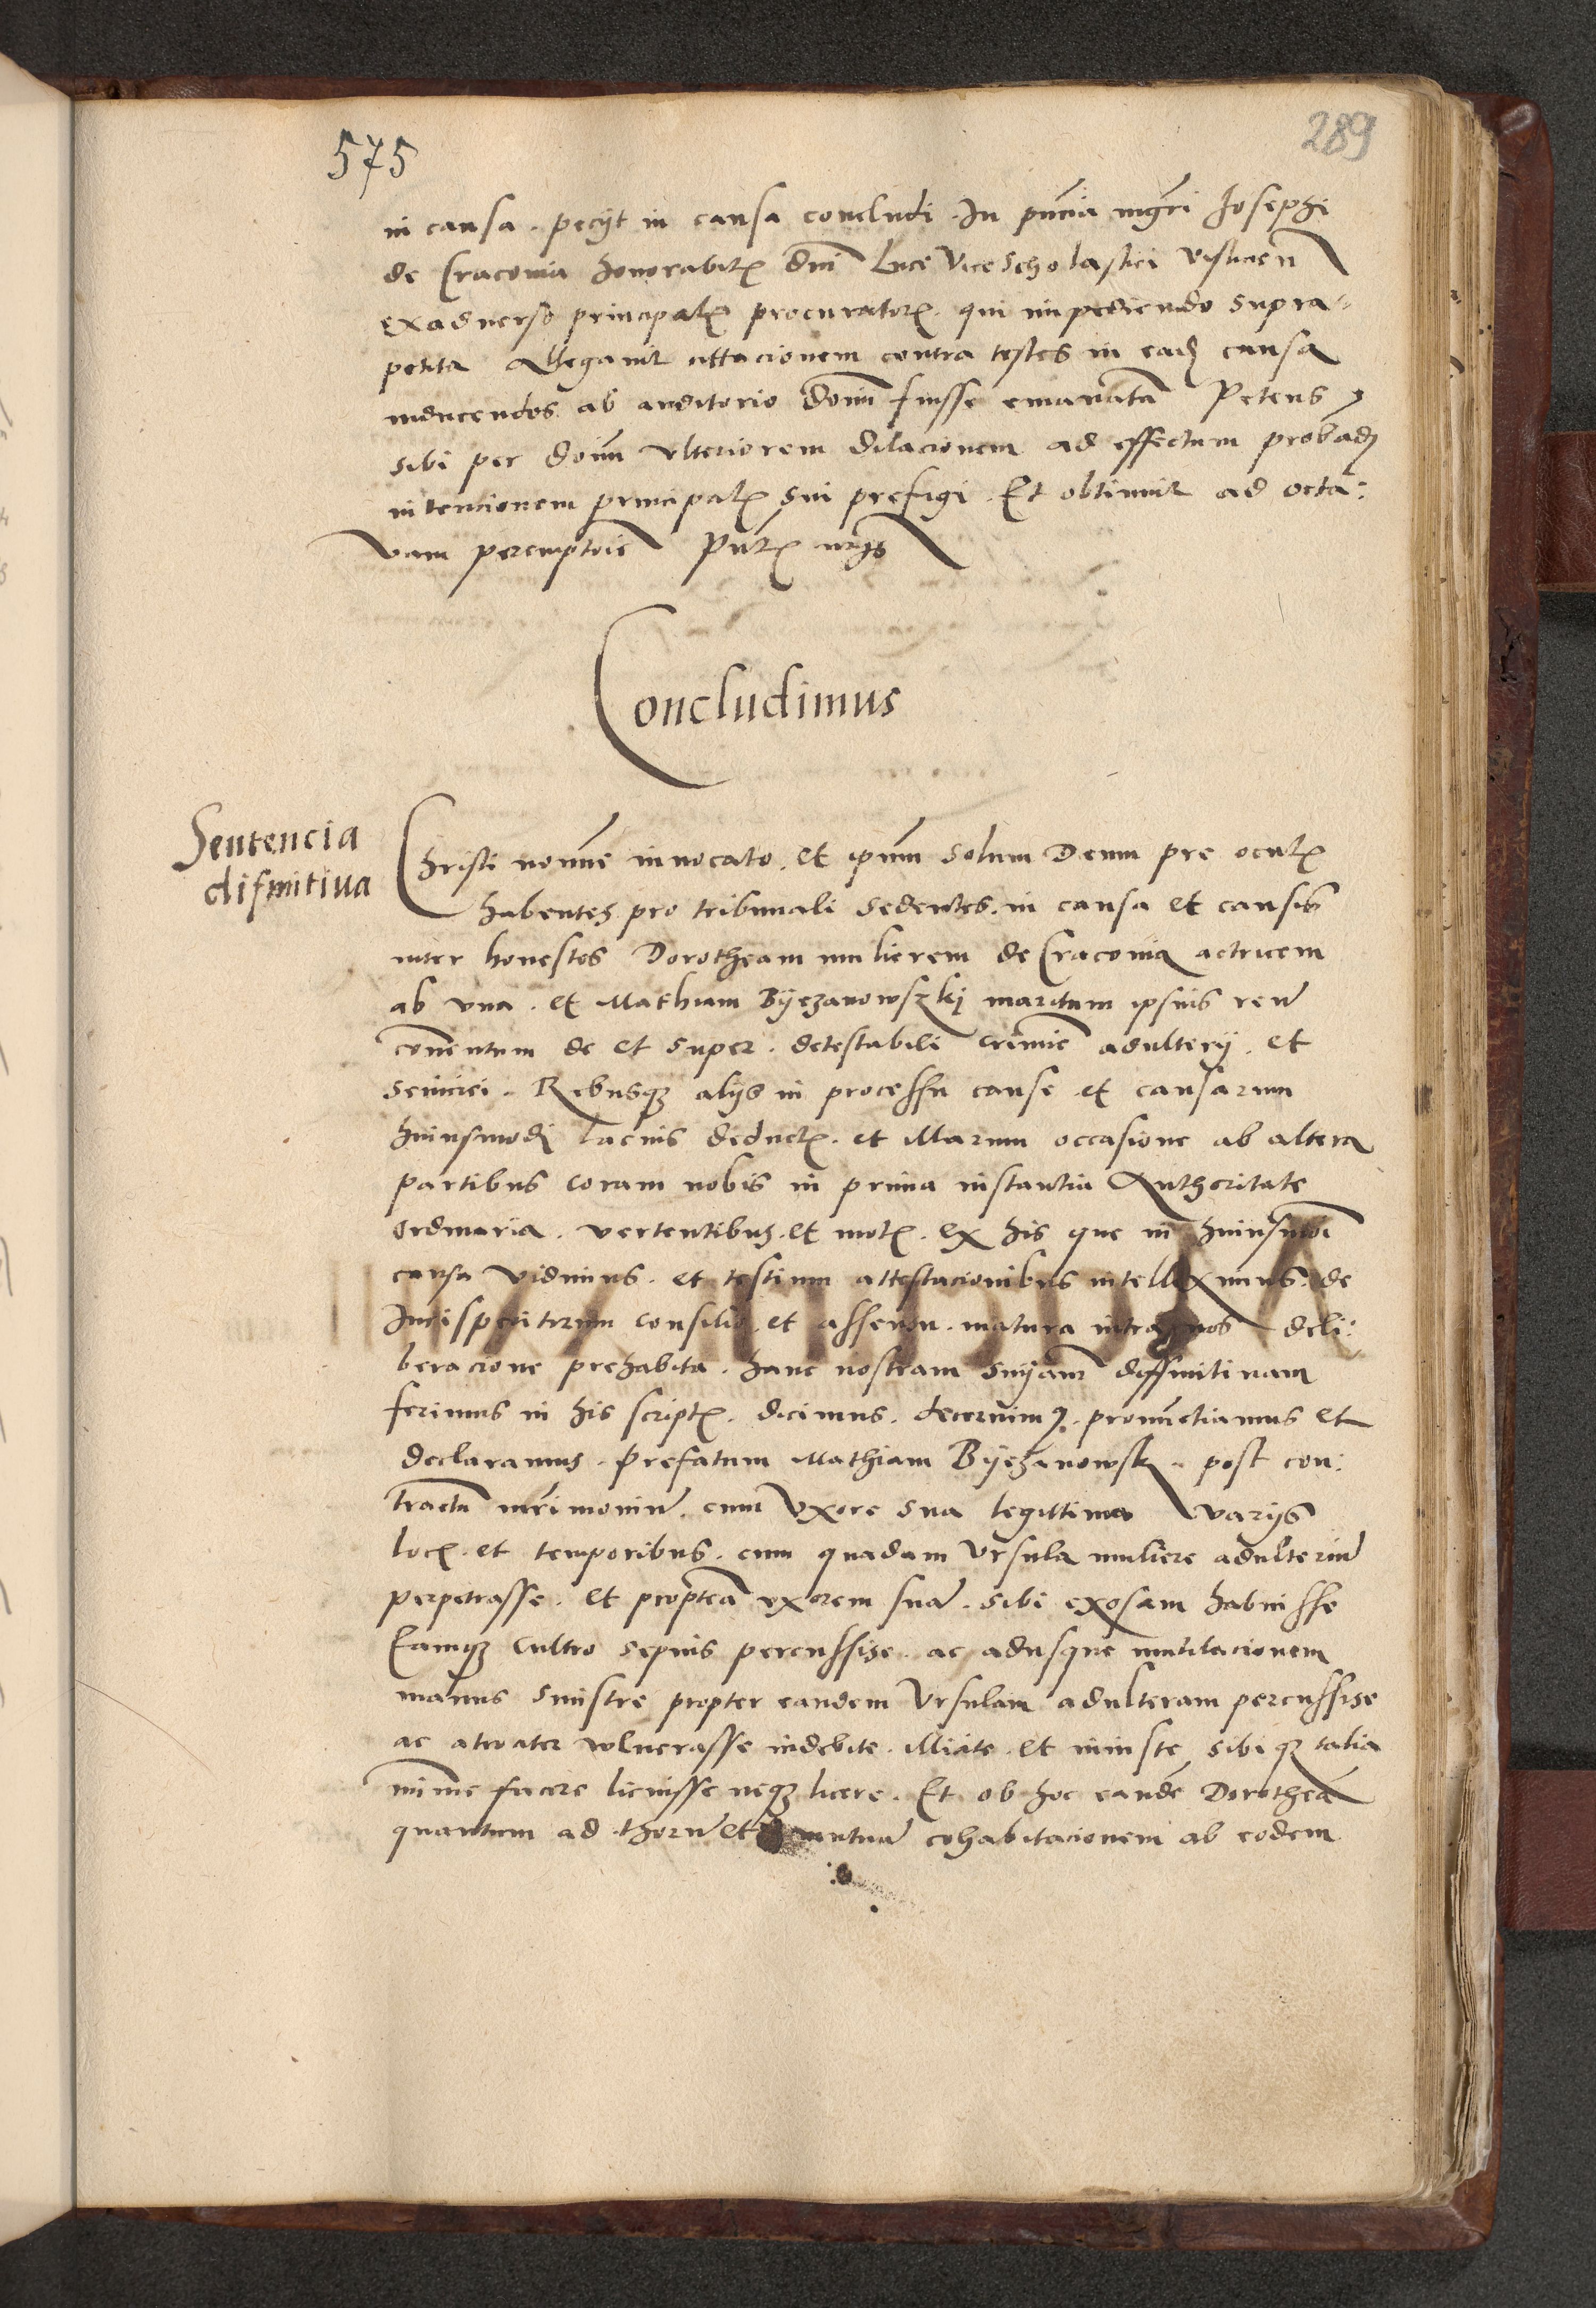 575
289
in causa. peciit in causa concludi. In pñcia mgri Josephi
de Cracouia honorabil dni Luce Vicescholastici Vislicien
exaduerso principal procurator. qui impediendo supra=
petita Allegauit cittacionem contra testes in ead causa
inducendos ab auditorio dom fuisse emanatã Petens
sibi per dom vlteriorem dilacionem ad effectum proband
intencionem principal sui prefigi. Et obtinuit ad octa:
vam peremptorie
Concludimus
Sentencia
difinitiua
Christi nomine inuocato. et ipsum solum Deum pre ocul
habentes pro tribunali sedentes. in causa et causis
inter honestos Dorotheam mulierem de Cracouia actricem
ab vna. et Mathiam Byezanowszkj maritum ipsius reũ
conuentum de et super. detestabili crimine adulterij. et
seuiciei. Rebusq alijs in processu cause et causarum
huiusmodi lacius deduct. et illarum occasione ab altera
partibus coram nobis in prima instantia Authoritate
ordinaria. vertentibus. et mot. ex his que in huiusmoi
causa vidimus. et testium attestacionibus intelleximus. de
Jurisperitorum consilio. et assensu. matura intra nos deli:
beracione prehabita. hanc nostram snĩam diffinitiuam
ferimus in his script. dicimus. decernim9. pronunctiamus et
declaramus. prefatum Mathiam Byezanowsk. post con:
tractũ mrimoniũ. cum Vxore sua legittima varijs
loc. et temporibus. cum quadam Vrsula muliere adulteriũ
perpetrasse. et propterea vxorem suã. sibi exosam habuisse
Eamq cultro sepius percussise. ac adusque mutilacionem
manus sinistre propter eandem Vrsulam adulteram percussise
ac atrociter wlnerasse indebite. illicite. et iniuste sibiq talia
minime facere licuisse neq licere. Et ob hoc eandẽ Dorotheã
quantum ad thorũ et mutuã cohabitacionem ab eodem